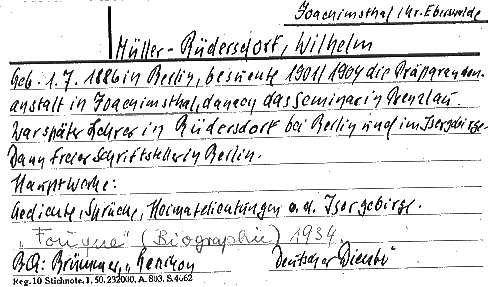 Joachimsthal Kr. Eberswalde
Müller-Rüdersdorf, Wilhelm
Geb. 1. 7. 1886 in Berlin, besuchte 1901/1904 die Präparanden-
anstalt in Joachimsthal, danach das Seminar in Prenzlau.
War später Lehrer in Rüdersdorf bei Berlin und im Isergebirge.
Dann freier Schriftsteller in Berlin.
Hauptwerke:
Gedichte, Sprüche, Heimatdichtungen a. d. Isergebirge.
„Fouqué" (Biographie) 1934
BQ: Brümmer, „Lexikon Deutscher Dichter"
Reg. 10 Stichnote. 1, 50. 232000. A. 803. S. 4662